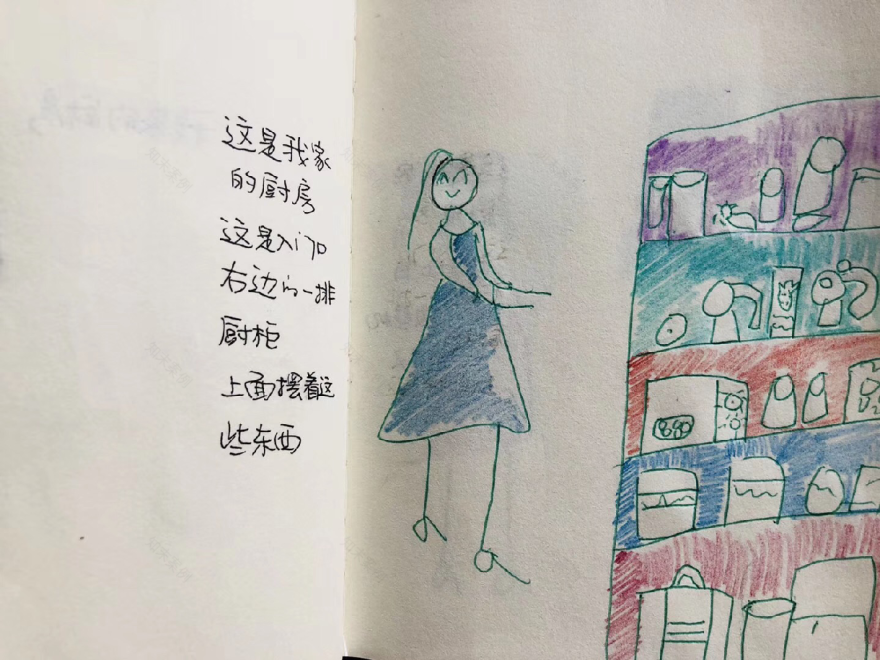 这是我家
的厨房
这是入门
右边的一排
厨柜
上面摆着这
些东西